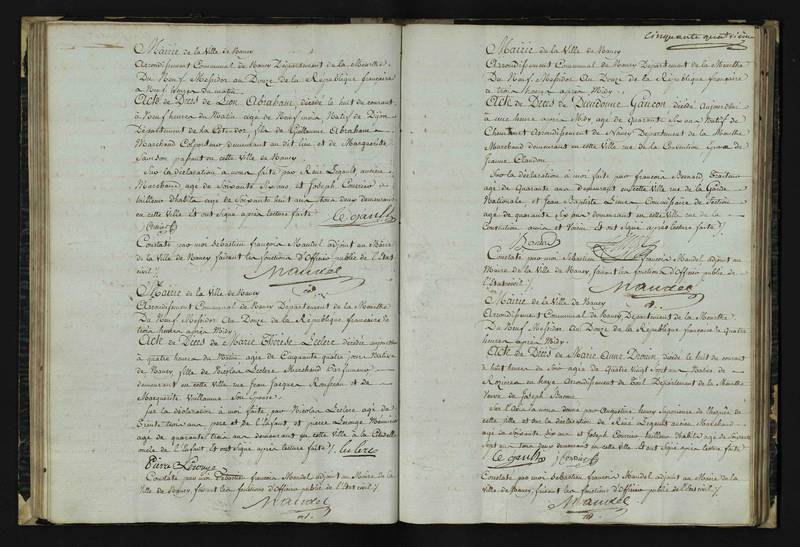 Mairie de la Ville de Nancy
Arrondissement Communal de Nancy Département de la Meurthe
Du Neuf Messidor an Douze de la République française
à Neuf heures du matin
Acte de Décès de Lion Abraham, décédé le huit du courant
à Neuf heures du Matin, agé de Neuf mois Natif de Dijon
Département de la Côte d'or, fils de Guillaume Abraham
Marchand Colporteur demeurant au dit lieu et de Marguerite
Samson passant en cette Ville de Nancy
Sur la déclaration à nous faite par Réné Legault, ancien
Marchand age de soixante et Joseph Courrier
tailleur d'habits age de soixante huit ans tous deux demeurans
en cette Ville et ont signé après lecture faite Legault
Constaté par moi Sébastien françois Mandel adjoint au Maire
de la Ville de Nancy faisant les fonctions d'Officier public de l'Etat
civil
Mandel
Mairie de la Ville de Nancy
Arrondissement Communal de Nancy Département de la Meurthe
Du Neuf Messidor An Douze de la République française à
trois heures après Midy
Acte de Décès de Marie Thérèse Leclerc décédée aujourd'hui
à quatre heures du Matin agée de Cinquante quatre jours Native
de Nancy, fille de Nicolas Leclerc Marchand Parfumeur
demeurant en cette ville rue Jean Jacques Rousseau et de
Marguerite Vuillaume Son Epouse
Sur la déclaration à moi faite par Nicolas Leclerc agé de
trente trois ans pere de l'Enfant, et pierre Lerouge
agé de quarante trois ans demeurant en cette ville
de l'Enfant et ont signé après lecture faite Leclerc
Pierre Lerouge
Constaté par moi Sébastien françois Mandel adjoint au Maire de la
Ville de Nancy, faisant les fonctions d'Officier public de l'Etat civil
Mandel
Cinquante quatrième
Mairie de la Ville de Nancy
Arrondissement Communal de Nancy Département de la Meurthe
Du Neuf Messidor An Douze de la République française
à trois heures après Midy
Acte de Décès de Dieudonné Gaucon décédé Aujourd'hui
à une heure après Midy agé de Quarante Six ans Natif de
arrondissement de Nancy Département de la Meurthe
Marchand demeurant en cette Ville rue de la Constitution Epoux de
Jeanne Claudon
Sur la déclaration à moi faite par françois Bernard Traiteur
agé de Quarante ans demeurant en cette Ville rue de la Garde
Nationale, et Jean Baptiste Commissaire de Section
agé de quarante Six ans demeurant en cette Ville rue de la
Constitution amis et Voisins Et ont signé après lecture faite
Constaté par moi Sébastien françois Mandel adjoint au
Maire de la Ville de Nancy faisant les fonctions d'Officier public de
l'Etat civil
Mandel
Mairie de la Ville de Nancy
Arrondissement Communal de Nancy Département de la Meurthe
Du Neuf Messidor An Douze de la République française à quatre
heures après Midy
Acte de Décès de Marie Anne Drouin décédée le huit du courant
à huit heures du soir agée de Quatre Vingt Sept ans Native de
Rozieres en haye Arrondissement de Toul Département de la Meurthe
Veuve de Joseph
Sur l'avis à nous donné par Augustine henry Supérieure de l'hospice de
cette ville et sur la déclaration de Réné Legault ancien Marchand
agé de soixante dix ans et Joseph Courrier tailleur d'habits agé de soixante
huit ans tous deux demeurant en cette ville Et ont signé après lecture faite
Legault
Constaté par moi Sébastien françois Mandel adjoint au Maire de la
Ville de Nancy, faisant les fonctions d'Officier public de l'Etat civil
Mandel